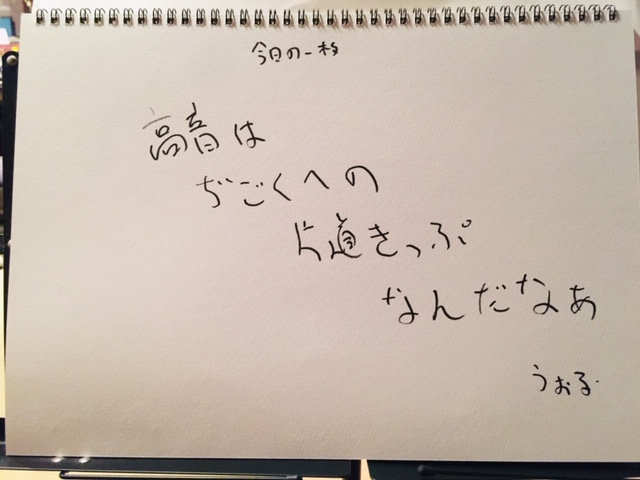 今日の一枚
高音は
ぢごくへの
片道きっぷ
なんだなあ
うぉる